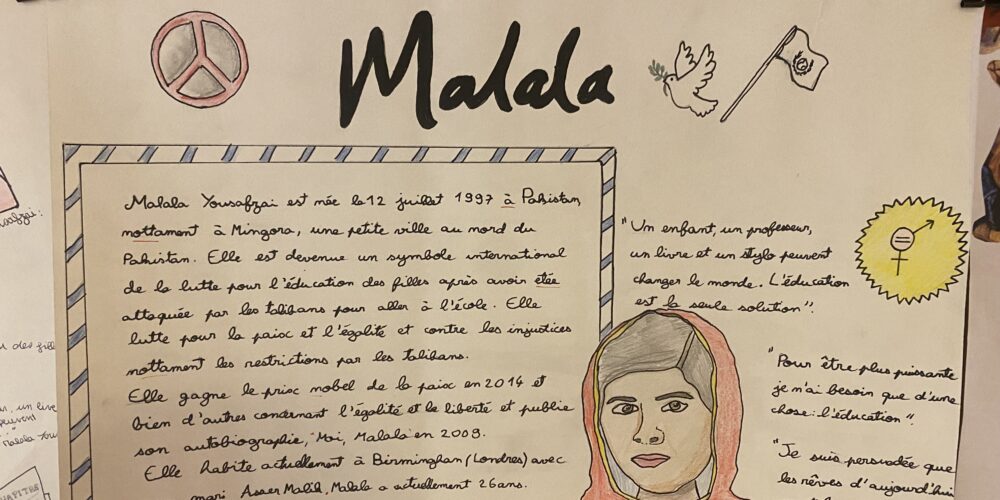 Malala
Malala Yousafzai est née le 12 juillet 1997 à Pakistan,
nottament à Mingora, une petite ville au nord du
Pakistan. Elle est devenue un symbole international
de la lutte pour l'éducation des filles après avoir étée
attaquée par les talibans pour aller à l'école. Elle
lutte pour la paix et l'égalité et contre les injustices
nottament les restrictions par les talibans.
Elle gagne le prix nobel de la paix en 2014 et
bien d'autres concernant l'égalité et la liberté et publie
son autobiographie, Moi, Malala en 2009.
Elle habite actuellement à Birminghan (Londres) avec
mari Asser Malik, Malala a actuellement 26 ans.
"Un enfant, un professeur,
un livre et un stylo peuvent
changer le monde. L'éducation
est la seule solution".
"Pour être plus puissante
je n'ai besoin que d'une
chose: l'éducation".
"Je suis persuadée que
les rêves d'aujourd'hui
des fill
un live
peuvent
CHAPITRE